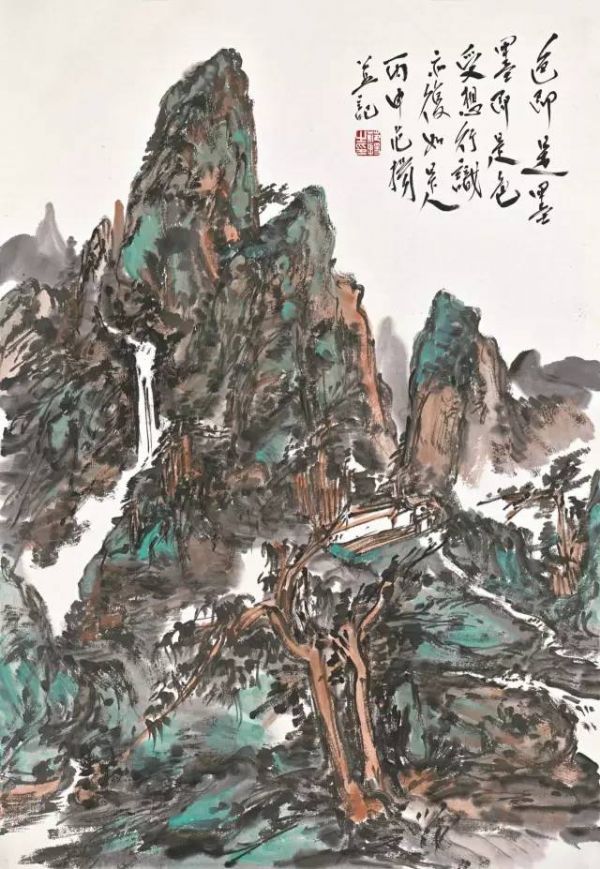 色即是墨
墨即是色
受想行識
亦復如是
丙申范揚
並記